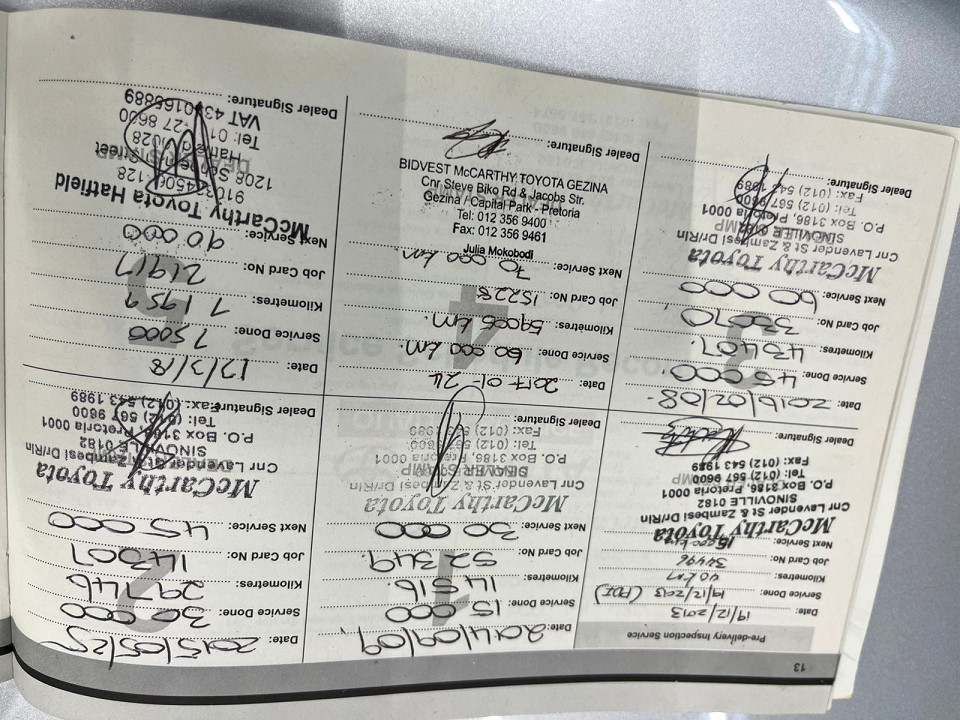 13
Pre-delivery Inspection Service
Date: 19/12/2013
Service Done: 19/12/2013 (PDI)
Kilometres: 40 km
Job Card No: 34496
Next Service: 15 000 km
McCarthy Toyota
Cnr Lavender St & Zambesi Dr/Rln
SINOVILLE 0182
P.O. Box 3186, Pretoria 0001
Tel: (012) 567 9600
Fax: (012) 543 1989
Dealer Signature:
1
Date: 2014/09/09
Service Done: 15 000
Kilometres: 14 516.
Job Card No: 52349.
Next Service: 30 000
McCarthy Toyota
Cnr Lavender St & Zambesi Dr/Rln
P.O. Box 3186, Pretoria 0001
Tel: (012) 567 9600
Fax: (012) 543 1989
Dealer Signature:
2
Date: 2015/05/25
Service Done: 30 000
Kilometres: 29746
Job Card No: 14307
Next Service: 45 000
McCarthy Toyota
Cnr Lavender St & Zambesi Dr/Rln
SINOVILLE 0182
P.O. Box 3186, Pretoria 0001
Tel: (012) 567 9600
Fax: (012) 543 1989
Dealer Signature:
3
Date: 2016/02/08
Service Done: 45 000
Kilometres: 43407.
Job Card No: 33070
Next Service: 60 000
McCarthy Toyota
Cnr Lavender St & Zambesi Dr/Rln
SINOVILLE
P.O. Box 3186, Pretoria 0001
Tel: (012) 567 9600
Fax: (012) 543 1989
Dealer Signature:
4
Date: 2017-01-24
Service Done: 60 000 km.
Kilometres: 59005 km.
Job Card No: 15228
Next Service: 70 000 km
Julia Mokobodi
BIDVEST McCARTHY TOYOTA GEZINA
Cnr Steve Biko Rd & Jacobs Str.
Gezina / Capital Park - Pretoria
Tel: 012 356 9400
Fax: 012 356 9461
Dealer Signature:
5
Date: 12/3/18
Service Done: 75000
Kilometres: 71959
Job Card No: 21917
Next Service: 90 000
McCarthy Toyota Hatfield
1208
Hatfield 0028
VAT
Dealer Signature: